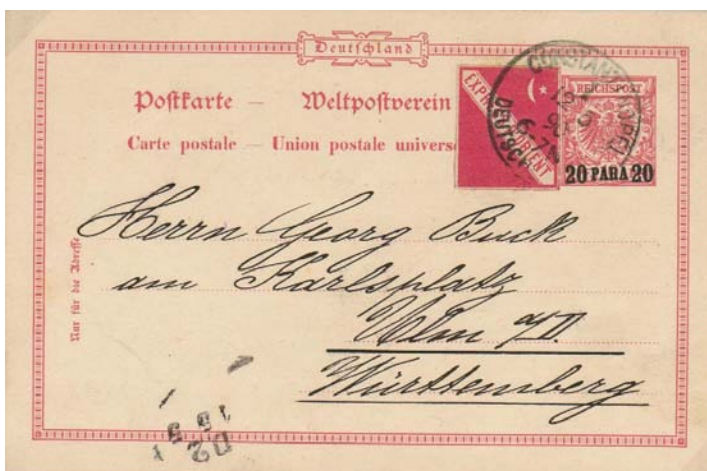 Deutschland
Postkarte — Weltpostverein
Carte postale — Union postale univers
EXPR
ORIENT
CONSTANTINOPEL
DEUTSCH
REICHSPOST
20 PARA 20
Nur für die Adresse
Herrn Georg Buck
am Karlsplatz
Ulm a/D.
Württemberg